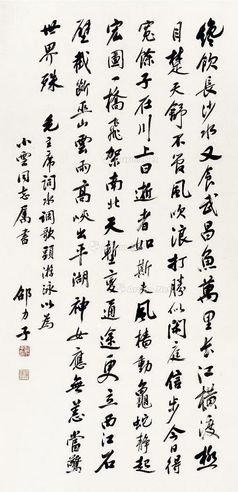 纔飲長沙水又食武昌魚萬里長江橫渡極
目楚天舒不管風吹浪打勝似閑庭信步今日得
寬餘子在川上曰逝者如斯夫風檣動龜蛇靜起
宏圖一橋飛架南北天塹變通途更立西江石
壁截斷巫山雲雨高峽出平湖神女應無恙當驚
世界殊
毛主席詞水調歌頭游泳以為
小雲同志屬書
邵力子